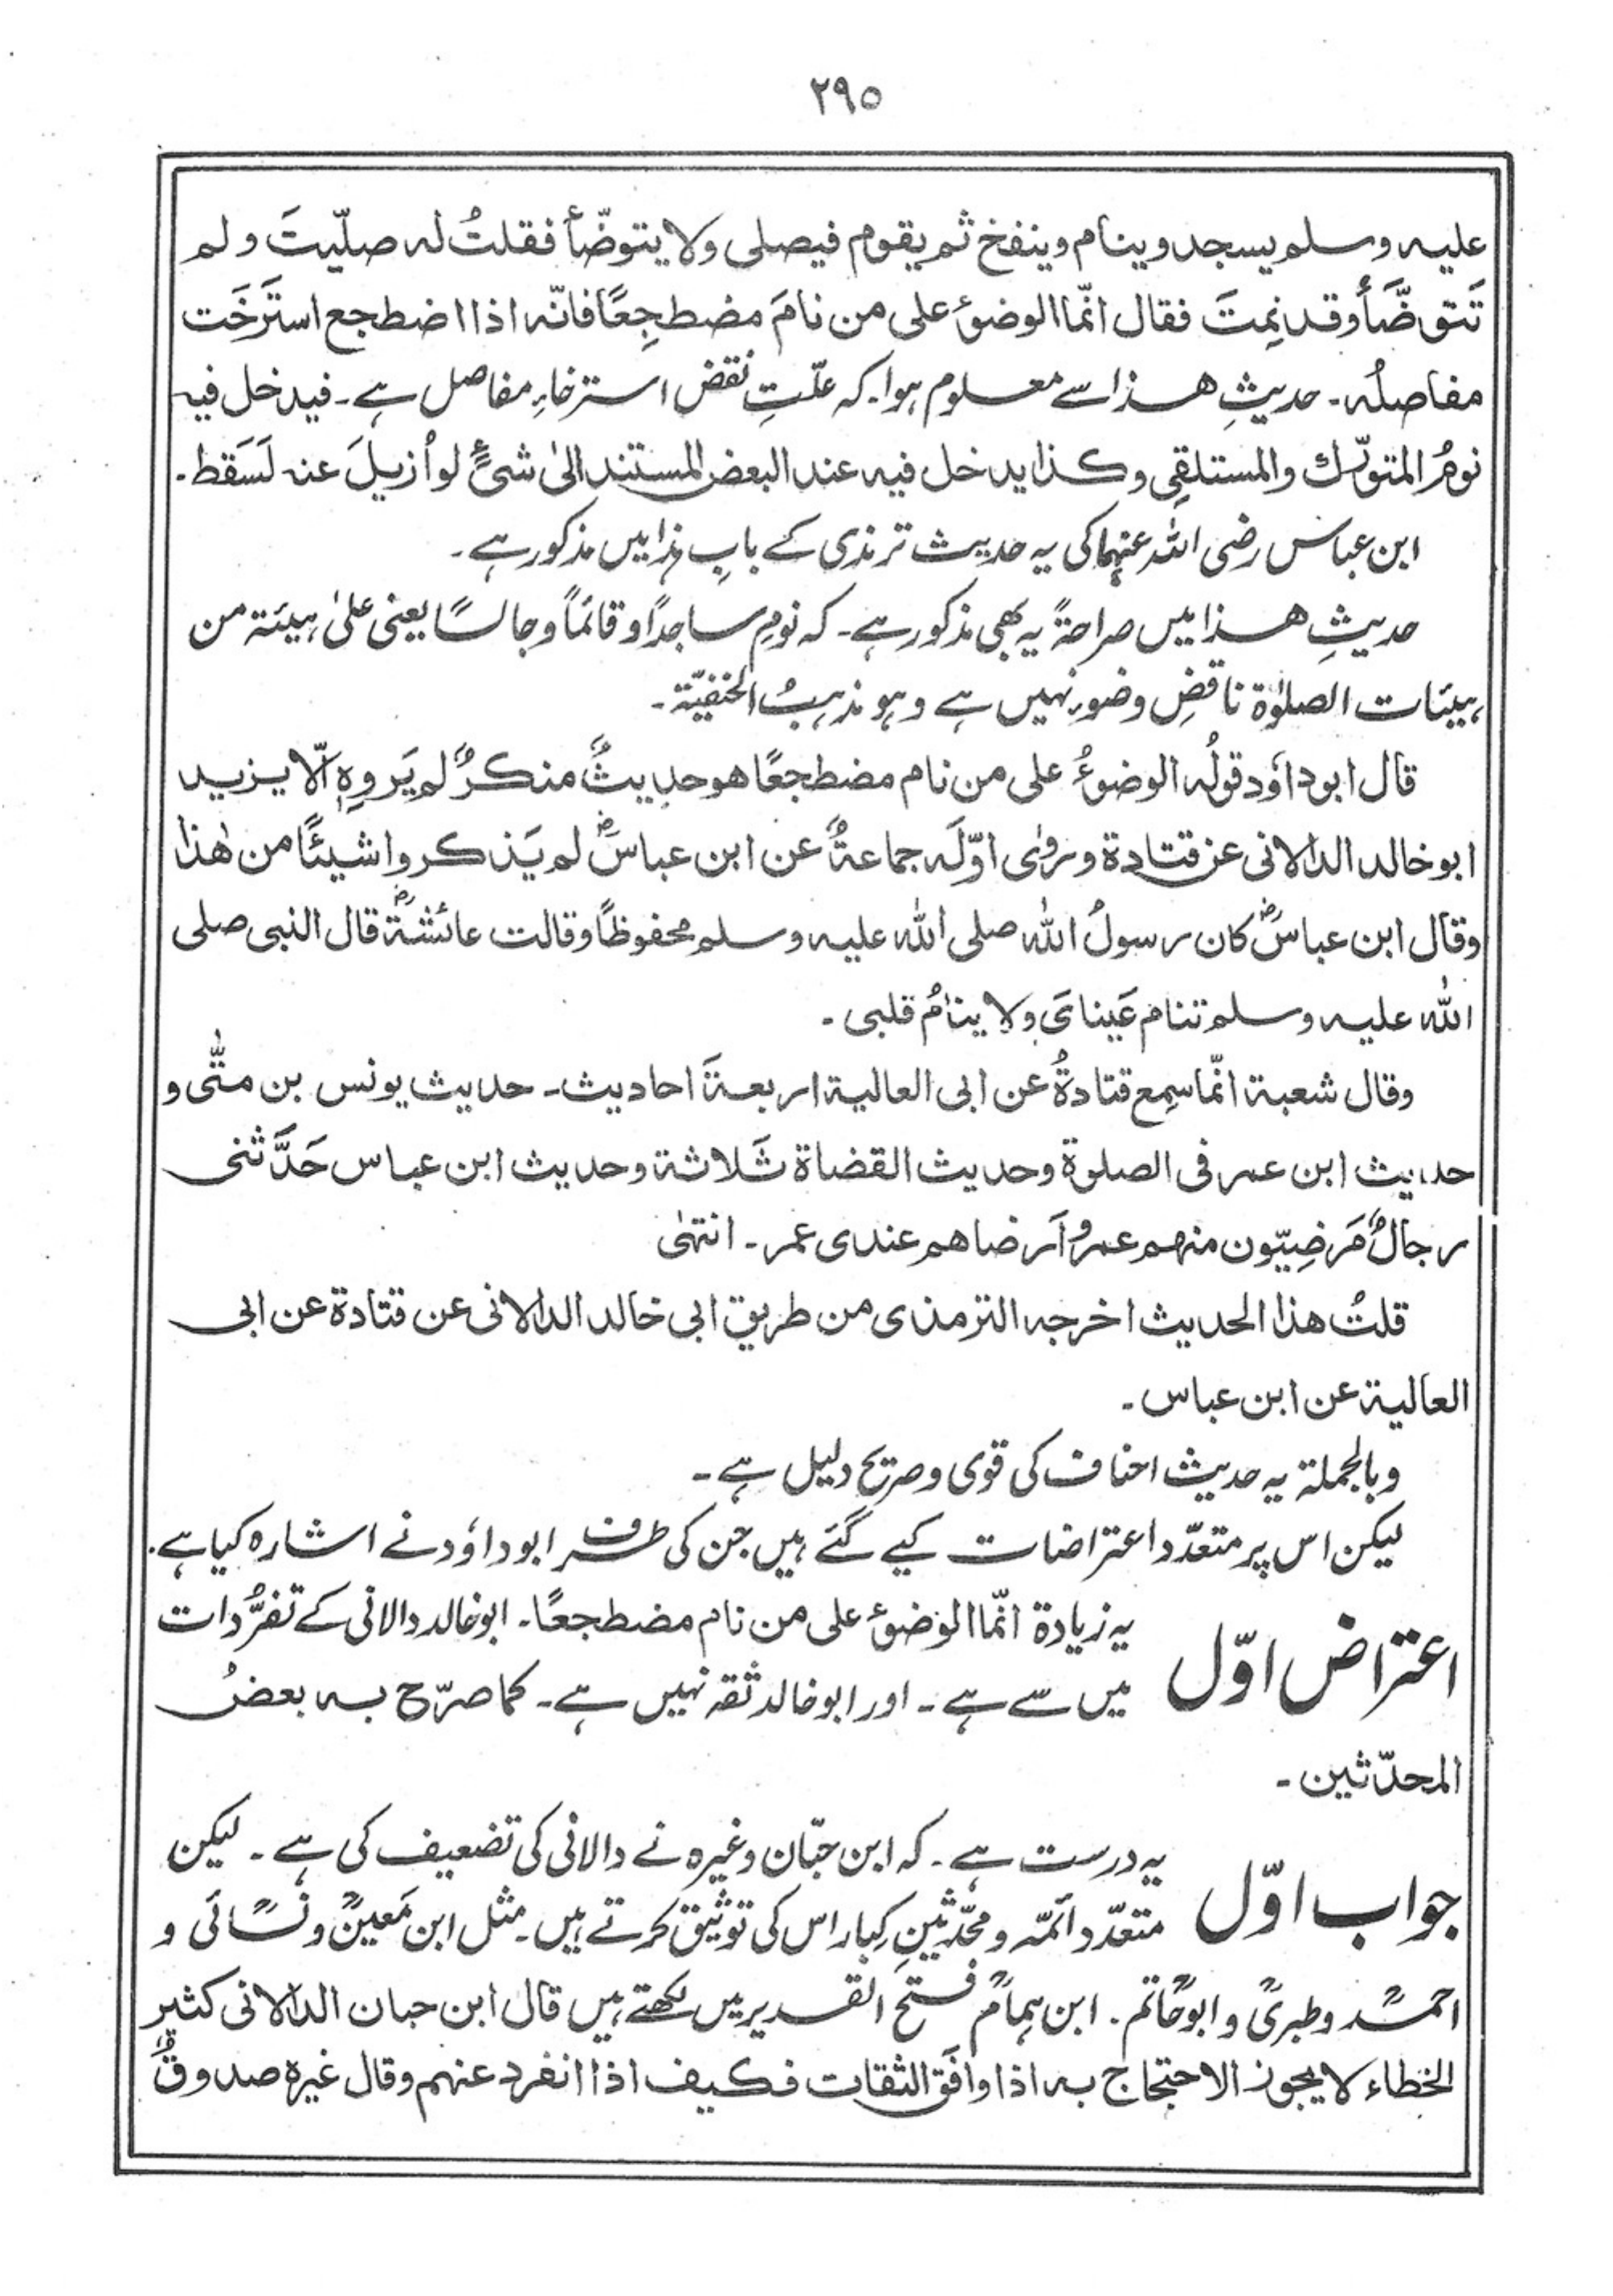 ۲۹۵
علیہ وسلم یسجد وینام وینفخ ثم یقوم فیصلی ولا یتوضّأ فقلتُ لہ صلّیتَ ولم
تَتوضَّأ وقد نِمتَ فقال انّما الوضوءُ علی من نامَ مضطجِعًا فانّہ اذا اضطجع استَرخَت
مفاصلُہ۔ حدیثِ ھذا سے معلوم ہوا۔ کہ علّتِ نقض استرخاءِ مفاصل ہے۔ فیدخل فیہ
نومُ المتورّك والمستلقِی وکذا یدخل فیہ عند البعض المستند الیٰ شیءٍ لو اُزیلَ عنہ لَسَقط۔
ابن عباس رضی اللہ عنہما کی یہ حدیث ترمذی کے بابِ ہذا میں مذکور ہے۔
حدیثِ ھذا میں صراحۃً یہ بھی مذکور ہے۔ کہ نومِ ساجدًا وقائمًا وجالسًا یعنی علیٰ ہیئۃ من
ہیئات الصلوٰۃ ناقضِ وضوء نہیں ہے وہو مذہبُ الحنفیّۃ۔
قال ابوداوٗد قولُہ الوضوءُ علی من نام مضطجعًا ھو حدیثٌ منکرٌ لم یَروِہٖ الّا یزید
ابوخالد الدالانی عن قتادۃ وروٰی اوّلَہ جماعۃٌ عن ابن عباسؓ لم یَذکروا شیئًا من ھٰذا
وقال ابن عباسؓ کان رسولُ اللہ صلی اللہ علیہ وسلم محفوظًا وقالت عائشۃؓ قال النبی صلی
اللہ علیہ وسلم تنام عَینایَ ولا ینامُ قلبی۔
وقال شعبۃ انّما سمِع قتادۃُ عن ابی العالیۃ اربعۃَ احادیث۔ حدیث یونس بن متّٰی و
حدیث ابن عمر فی الصلوۃ وحدیث القضاۃ ثَلاثۃ وحدیث ابن عباس حَدَّثنی
رجالٌ مَرضِیّون منھم عمرو اَرضاھم عندی عمر۔ انتہٰی
قلتُ ھذا الحدیث اخرجہ الترمذی من طریق ابی خالد الدالانی عن قتادۃ عن ابی
العالیۃ عن ابن عباس۔
وبالجملۃ یہ حدیث احناف کی قوی وصریح دلیل ہے۔
لیکن اس پر متعدّد اعتراضات کیے گئے ہیں جن کی طرف ابوداوٗد نے اشارہ کیا ہے۔
اعتراض اوّل یہ زیادۃ انّما الوضوءُ علی من نام مضطجعًا۔ ابوخالد دالانی کے تفرُّدات
میں سے ہے۔ اور ابوخالد ثقہ نہیں ہے۔ کما صرّح بہ بعضُ
المحدّثین۔
جواب اوّل یہ درست ہے۔ کہ ابن حبّان وغیرہ نے دالانی کی تضعیف کی ہے۔ لیکن
متعدّد ائمّہ ومحدّثینِ کِبار اس کی توثیق کرتے ہیں۔ مثل ابن مَعینؒ ونسائیؒ و
احمدؒ وطبریؒ وابوحاتمؒ۔ ابن ہمامؒ فتح القدیر میں لکھتے ہیں قال ابن حبان الدالانی کثیر
الخطاء لا یجوز الاحتجاج بہ اذا وافَق الثقات فکیف اذا انفرد عنھم وقال غیرہ صدوقٌ